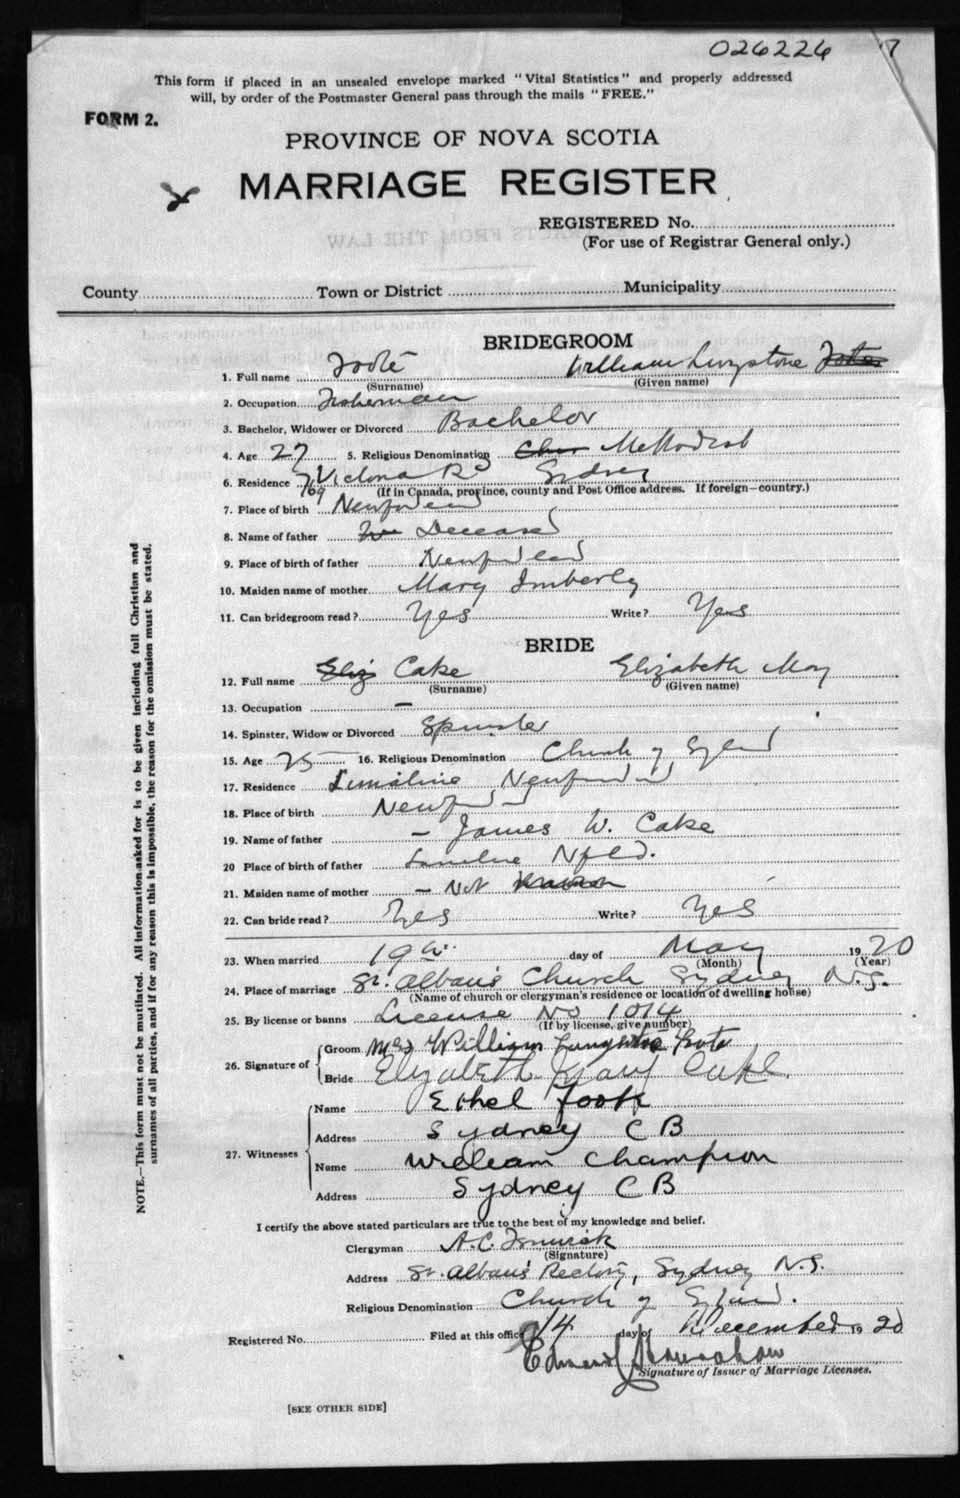 026226 7
This form if placed in an unsealed envelope marked "Vital Statistics" and properly addressed
will, by order of the Postmaster General pass through the mails "FREE."
FORM 2.
PROVINCE OF NOVA SCOTIA
MARRIAGE REGISTER
REGISTERED No.
(For use of Registrar General only.)
County Town or District Municipality
BRIDEGROOM
1. Full name Foote William Livingstone Foote
(Surname) (Given name)
2. Occupation Fisherman
3. Bachelor, Widower or Divorced Bachelor
4. Age 27 5. Religious Denomination Methodist
6. Residence 769 Victoria Rd Sydney
(If in Canada, province, county and Post Office address. If foreign—country.)
7. Place of birth Newfoundland
8. Name of father Deceased
9. Place of birth of father Newfoundland
10. Maiden name of mother Mary Imberly
11. Can bridegroom read? Yes Write? Yes
BRIDE
12. Full name Eliz Cake Elizabeth May
(Surname) (Given name)
13. Occupation —
14. Spinster, Widow or Divorced Spinster
15. Age 25 16. Religious Denomination Church of England
17. Residence Lamaline Newfoundland
18. Place of birth Newfoundland
19. Name of father — James W. Cake
20 Place of birth of father Lamaline Nfld.
21. Maiden name of mother — Not known
22. Can bride read? Yes Write? Yes
23. When married 19th day of May 1920
(Month) (Year)
24. Place of marriage St. Alban's Church Sydney N.S.
(Name of church or clergyman's residence or location of dwelling house)
25. By license or banns License No 1014
(If by license, give number)
26. Signature of Groom William Livingstone Foote
Bride Elizabeth Mary Cake
27. Witnesses Name Ethel Foote
Address Sydney C B
Name William Champion
Address Sydney C B
I certify the above stated particulars are true to the best of my knowledge and belief.
Clergyman A.C.
(Signature)
Address St. Alban's Rectory, Sydney N.S.
Religious Denomination Church of England.
Registered No. Filed at this office 14 day of December 1920
Signature of Issuer of Marriage Licenses.
[SEE OTHER SIDE]
NOTE.—This form must not be mutilated. All information asked for is to be given including full Christian and
surnames of all parties, and if for any reason this is impossible, the reason for the omission must be stated.